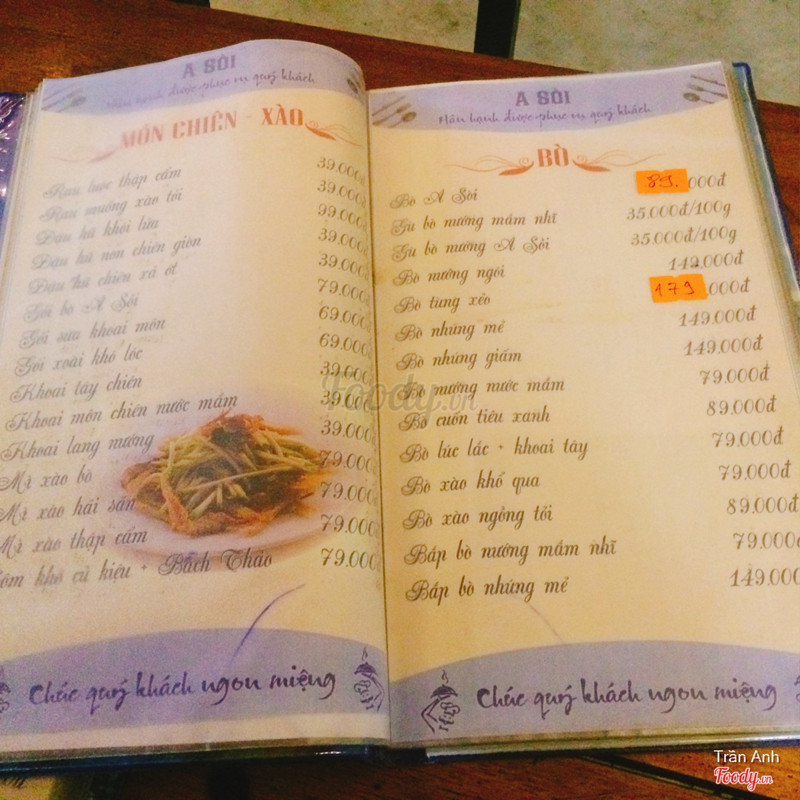 A SÒI
Hân hạnh được phục vụ quý khách
MÓN CHIÊN - XÀO
Rau luộc thập cẩm 39.000
Rau muống xào tỏi 39.000
Đậu hũ khói lửa 99.000
Đậu hũ non chiên giòn 39.000
Đậu hũ chiên xả ớt 39.000
Gỏi bò A Sòi 79.000
Gỏi sứa khoai môn 69.000
Gỏi xoài khô lóc 69.000
Khoai tây chiên 39.000
Khoai môn chiên nước mắm 39.000
Khoai lang nướng 39.000
Mì xào bò 79.000
Mì xào hải sản 79.000
Mì xào thập cẩm 79.000
Tôm khô củ kiệu + Bách Thảo 79.000
Chúc quý khách ngon miệng
A SÒI
Hân hạnh được phục vụ quý khách
BÒ
Bò A Sòi 89.000đ
Gu bò nướng mắm nhĩ 35.000đ/100g
Gu bò nướng A Sòi 35.000đ/100g
Bò nướng ngói 149.000đ
Bò tùng xẻo 179.000đ
Bò nhúng mẻ 149.000đ
Bò nhúng giấm 149.000đ
Bò nướng nước mắm 79.000đ
Bò cuốn tiêu xanh 89.000đ
Bò lúc lắc + khoai tây 79.000đ
Bò xào khổ qua 79.000đ
Bò xào ngồng tỏi 89.000đ
Bắp bò nướng mắm nhĩ 79.000đ
Bắp bò nhúng mẻ 149.000
Chúc quý khách ngon miệng
Foody.vn
Trần Anh
Foody.vn